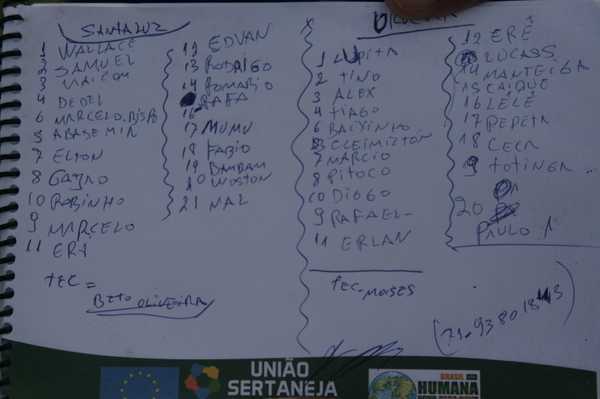 SANTALUZ
1 WALLACE
2 SAMUEL
3 MAICON
4 DEDEL
6 MARCELO.BISPO
5 ABASEMIN
7 ELTON
8
10 ROBINHO
9 MARCELO
11 ERY
TEC =
BETO OLIVEIRA
12 EDVAN
13 RODRIGO
14 ROMARIO
RAFA
16
17 MUMU
18 FABIO
19 BAMBAM
20 WOSTON
21 NAL
1 LUPITA
2 TINO
3 ALEX
4 TIAGO
6 BAIXINHO
5 CLEIMILTON
7 MARCIO
8 PITOCO
10 DIOGO
9 RAFAEL
11 ERLAN
TEC. MOISES
12 ERÊ
LUCAS
14 MANTEIGA
15 CAIQUE
16 LELÊ
17 PEPETA
18 LECA
19 TOTINGA
20
PAULO
UNIÃO
SERTANEJA
BRASIL
HUMANA